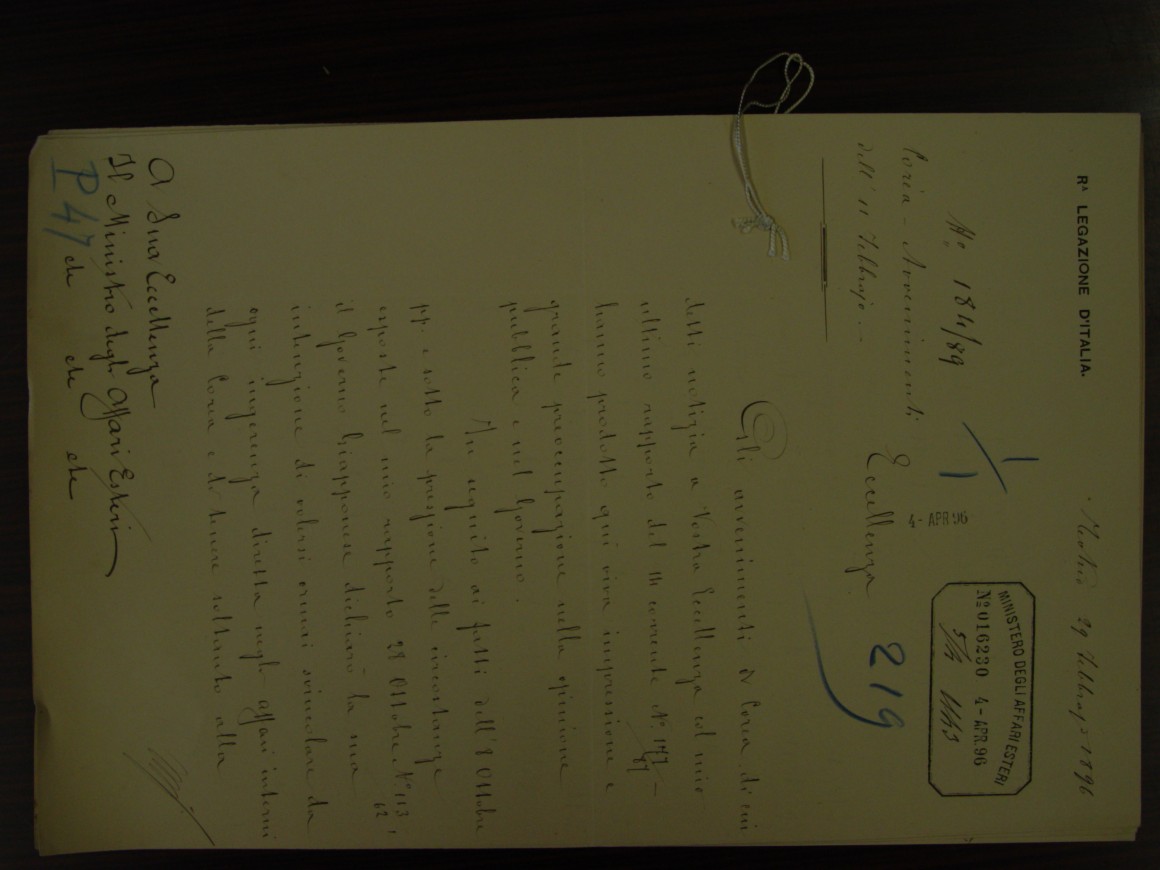 RA LEGAZIONE D'ITALIA.
29 Febbrajo 1896
No 184/89
Corea - Avvenimenti
dell' 11 Febbrajo -
MINISTERO DEGLI AFFARI ESTERI
No 016230 4-APR.96
4-APR 96
219
Eccellenza
Gli avvenimenti di Corea di cui
detti notizia a Vostra Eccellenza col mio
ultimo rapporto del corrente No
hanno prodotto qui viva impressione e
grande preoccupazione nella opinione
pubblica e nel Governo.
In seguito ai fatti dell' 8 Ottobre
pp. e sotto la pressione delle circostanze
esposte nel mio rapporto 28 Ottobre No 113/62,
il Governo Giapponese dichiarò la sua
intenzione di volersi ormai svincolare da
ogni ingerenza diretta negli affari interni
della Corea e di tenere soltanto alla
A Sua Eccellenza
Il Ministro degli Affari Esteri
P 47 etc etc etc